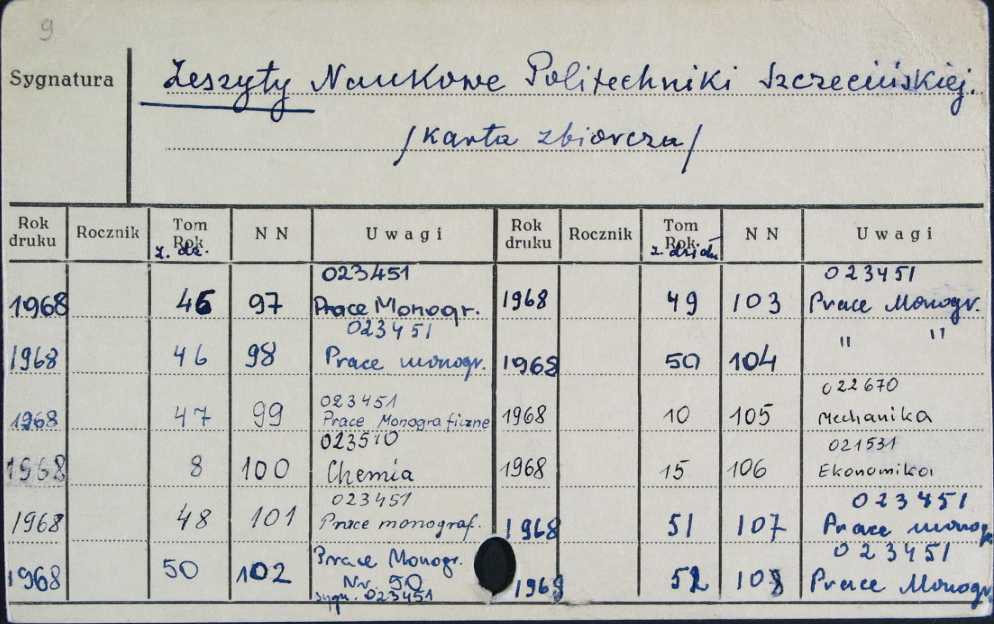 9
Sygnatura Zeszyty Naukowe Politechniki Szczecińskiej.
/karta zbiorcza/
Rok druku Rocznik Tom Rok z. dz. NN Uwagi Rok druku Rocznik Tom Rok z. działu NN Uwagi
023451 023451
1968 46 97 Prace Monogr. 1968 49 103 Prace Monogr.
023451
1968 46 98 Prace monogr. 1968 50 104 " "
023451 022670
1968 47 99 Prace Monograficzne 1968 10 105 Mechanika
023510 021531
1968 8 100 Chemia 1968 15 106 Ekonomika
023451 023451
1968 48 101 Prace monograf. 1968 51 107 Prace monogr
Prace Monogr. 023451
1968 50 102 Nr. 50 1968 52 108 Prace Monogr
sygn. 023451